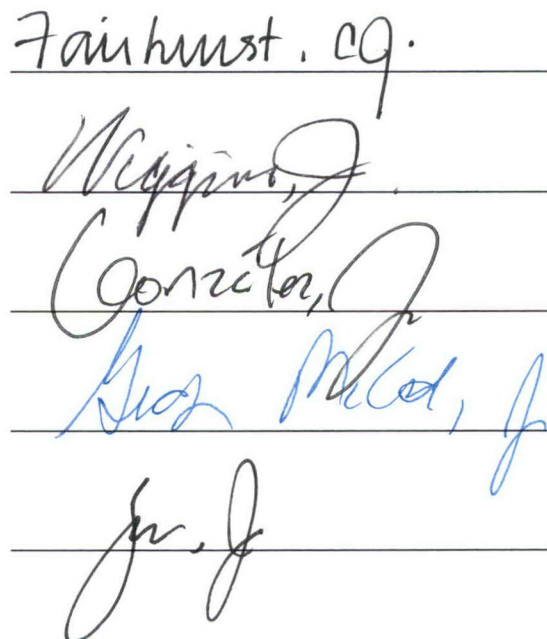 Fairhurst, CJ.
Wiggins, J.
González, J.
Gordon McCloud, J.
Yu, J.